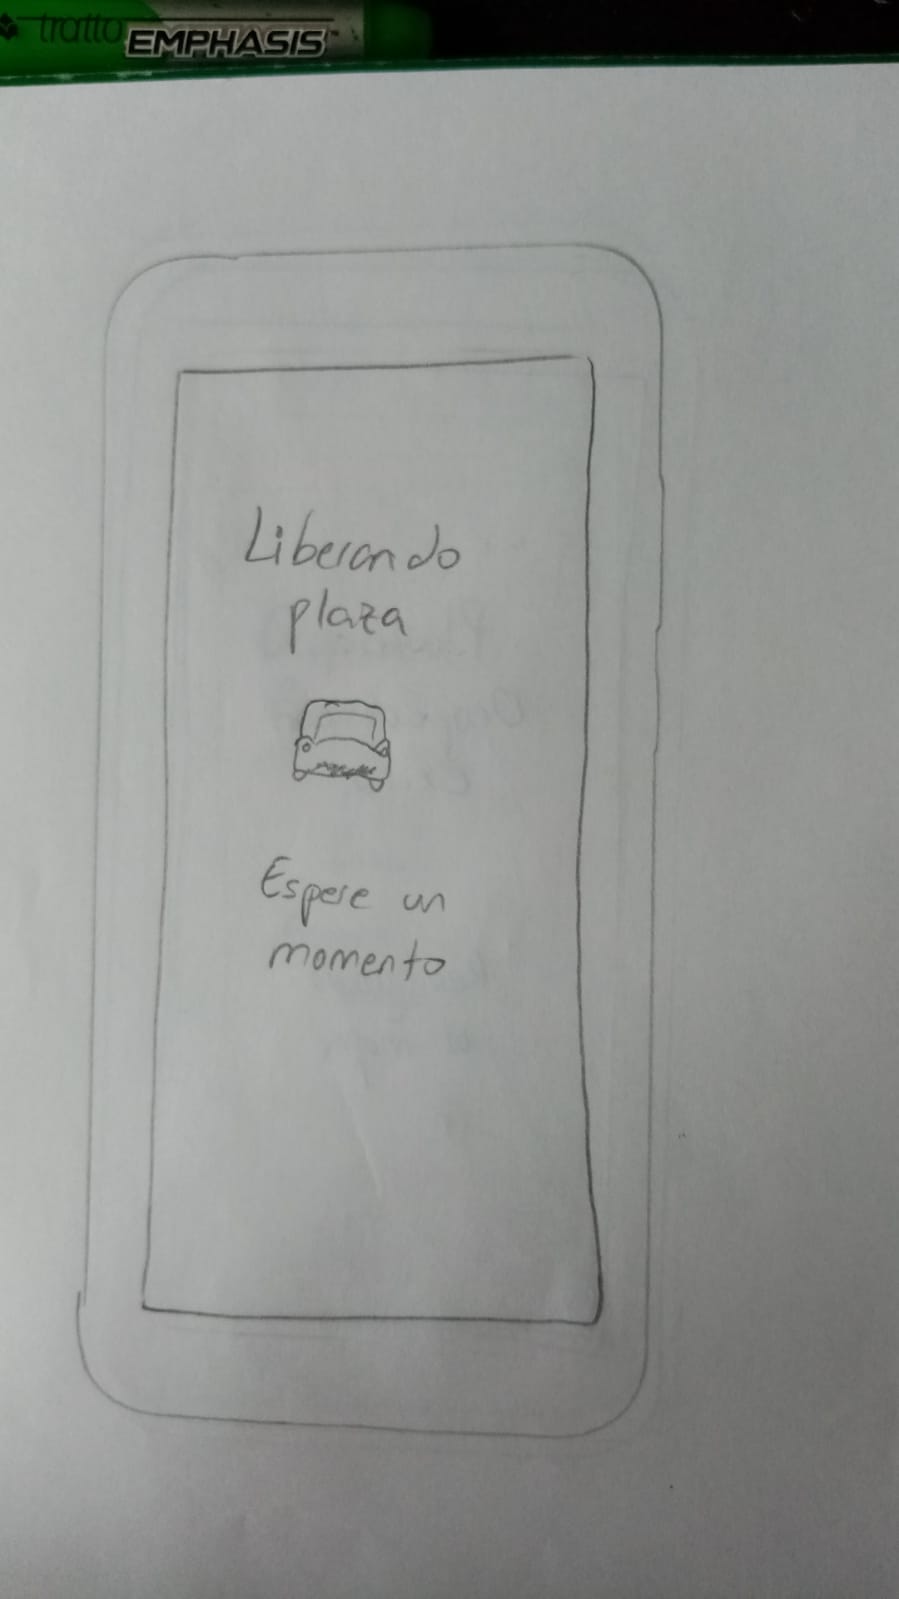 tratto
EMPHASIS
Liberando
plaza
Espere un
momento